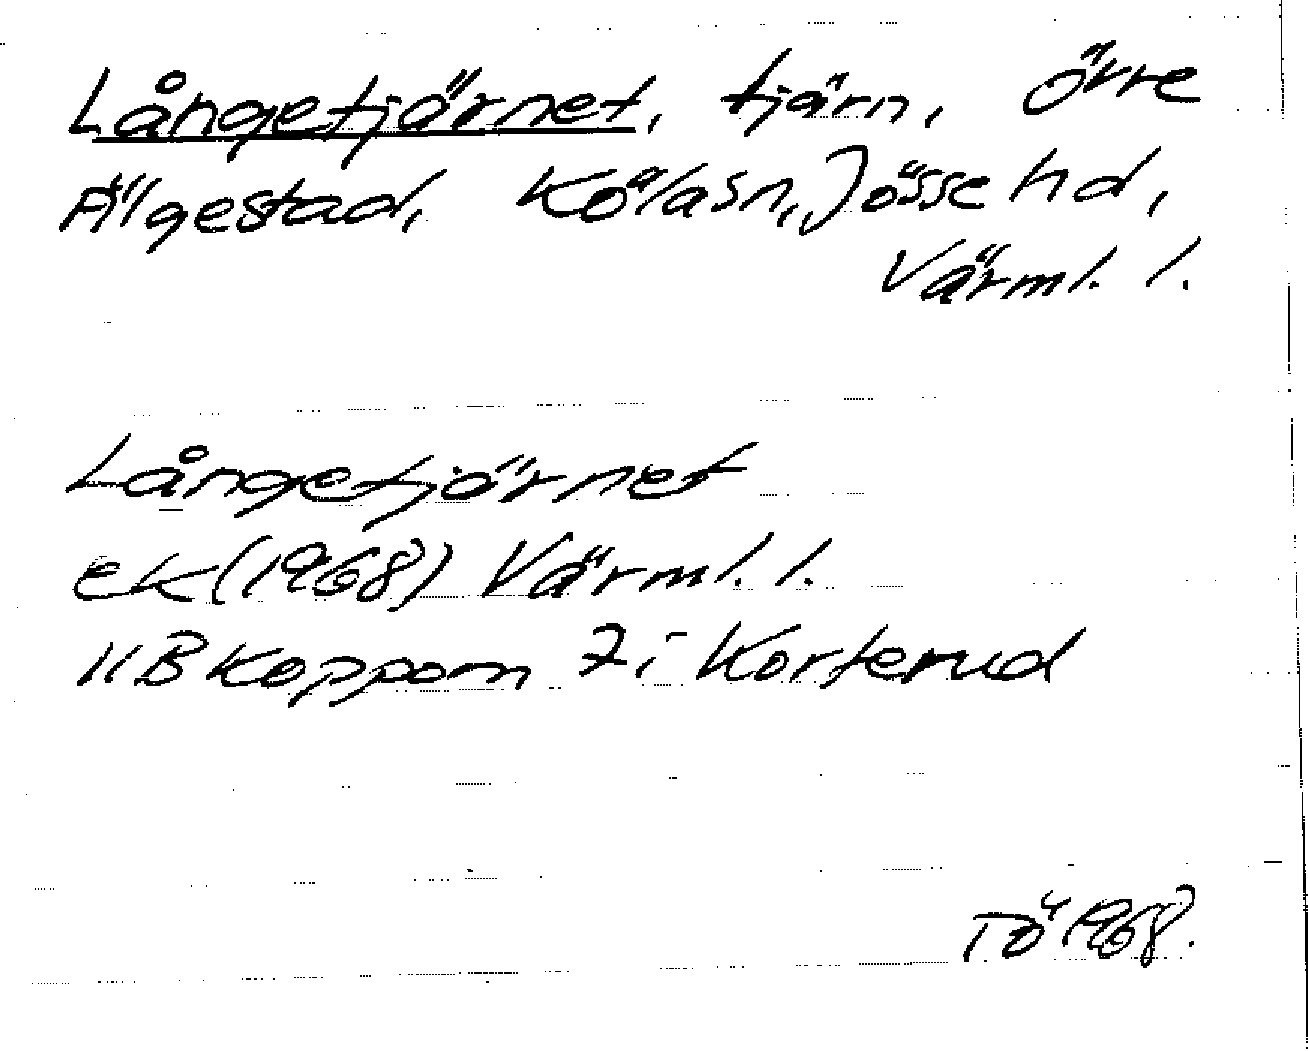 Långetjärnet, tjärn, övre
Älgestad, Köla sn, Jösse hd,
Värml. l.
Långetjärnet
ek (1968) Värml. l.
11B Koppom 7i Korterud
TÖ 1968.